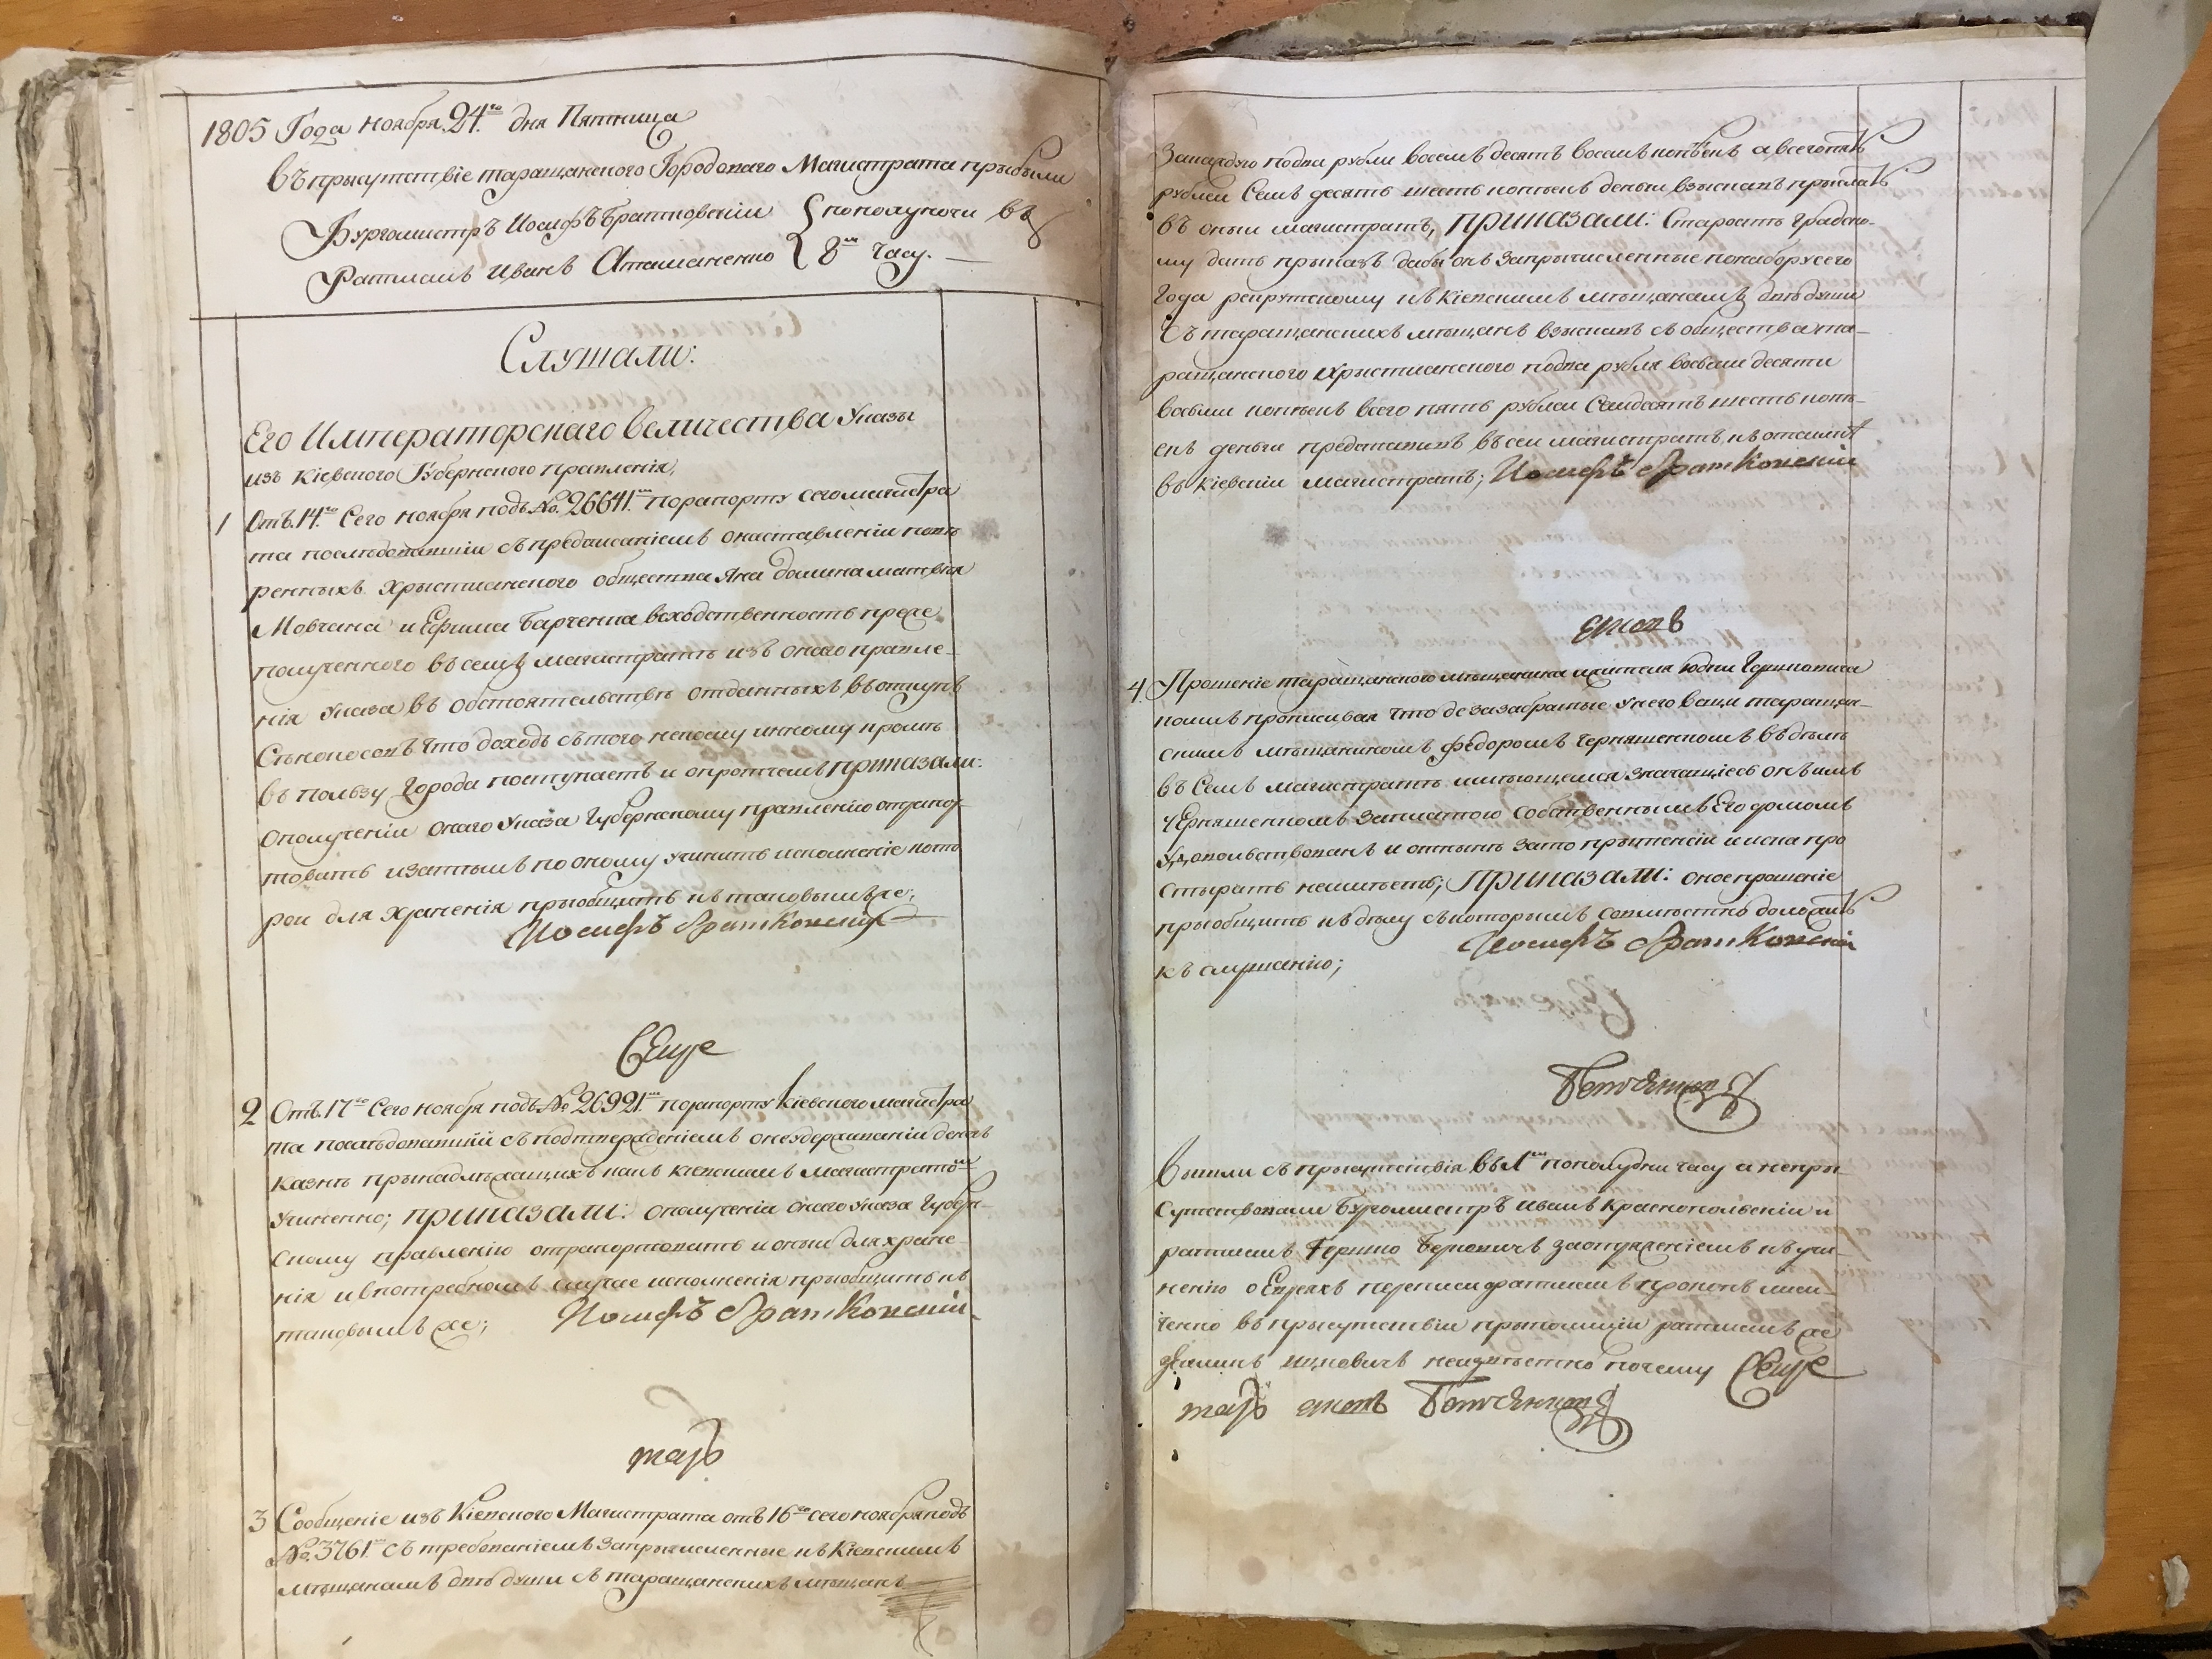 1805 Года ноября 24.го дня Пятница
въ присутствіе таращанского Городоваго Магистрата прибыли
Бургомистръ Иосифъ Братковскіи пополуночи въ
Ратманъ Иванъ Атаманенко 8м часу.
Слушали:
Его Императорскаго величества Указы
изъ Кіевского Губернского правленія,
1 Отъ.14.го Сего ноября подъ No.26641.м порапорту сегомагистра
та последовавшіи съпредписаніемъ онаставленіи повѣ
ренныхъ Христианского общества Яна долина матвѣя
Мовчана и Ефима Барченка всходственность преже
полученного въсемъ магистратѣ изъ оного правле-
нія указа въ обстоятельствѣ отданныхъ въоткупъ
Сѣнокосовъ что доходъ сътого некому инному кромѣ
въ пользу Города поступаетъ и опротчемъ приказали:
ополученіи оного Указа Губернскому правленію отрапор-
товать изатѣмъ по оному учинить исполненіе кото
рои для храненія приобщить къ таковымъже;
Иосифъ Братковскіи
Сенже
2 Отъ.17го Сего ноября подъ No 26921.м порапорту Кіевского магистра
та последовавшій съподтвержденіемъ онеудерживаніи денегъ
казнѣ принадлежащихъ какъ кіевскимъ магистратомъ
Учиненно; приказали: ополученіи оного Указа Губерн-
скому правленію отрапортовать и оный для хране-
нія ивпотребномъ случае исполненія приобщить къ
таковымъ же; Иосифъ Братковскіи
тажъ
3 Сообщеніе изъ Кіевского Магистрата отъ 16го сего ноября подъ
No.3761.м съ требованіемъ Запричисленные къ Кіевскимъ
мѣщанамъ двѣ души съ таращанскихъ мѣщанъ
Закаждую подва рубли восемъ десятъ восемъ копѣекъ авсегопять
рублеи Семъ десять шесть копѣекъ деньги взыскавъ прислать
въ оныи магистратъ, приказали: Старостѣ Градско-
му дать приказъ дабы онъ Запричисленные понаборусего
Года рекрутскому къ Кіевскимъ мѣщанамъ двѣ души
Съ таращанскихъ мѣщанъ взыскавъ съ общества та-
ращанского христианского подва рубля восьмидесяти
восьми копѣекъ всего пять рублеи Семдесятъ шесть копѣ-
екъ деньги представилъ въ сеи магистратъ къ отсылкѣ
въ кіевскіи магистратъ; Иосифъ Братковскіи
4. Прошеніе таращанского мѣщанина ижителя
комъ прописывая что
скимъ мѣщаниномъ федоромъ Черняшенкомъ въ дѣлѣ
въ Семъ магистратѣ имѣющемся значащіесь онъ имъ
Черняшенкомъ Записью собственнымъ Его домомъ
Удовольствованъ и отнынѣ зато притенсіи и иска про
стырать неимѣетъ; приказали: оное прошеніе
приобщить къ дѣлу съкоторымъ совмѣстно доложить
Иосифъ Братковскіи
къ слушанію;
Вышли съ присутствія въ 1м пополудни часу а непри-
Сутствовали Бургомистръ иванъ Краснопольскіи и
ратманъ Гершко Берковичъ заотряженіемъ къ учи-
ненію оЕвреяхъ переписи ратманъ
въ присутствіи притомиціи ратманъ же
ицковичъ неизвѣстно почему Сенже
тажъ